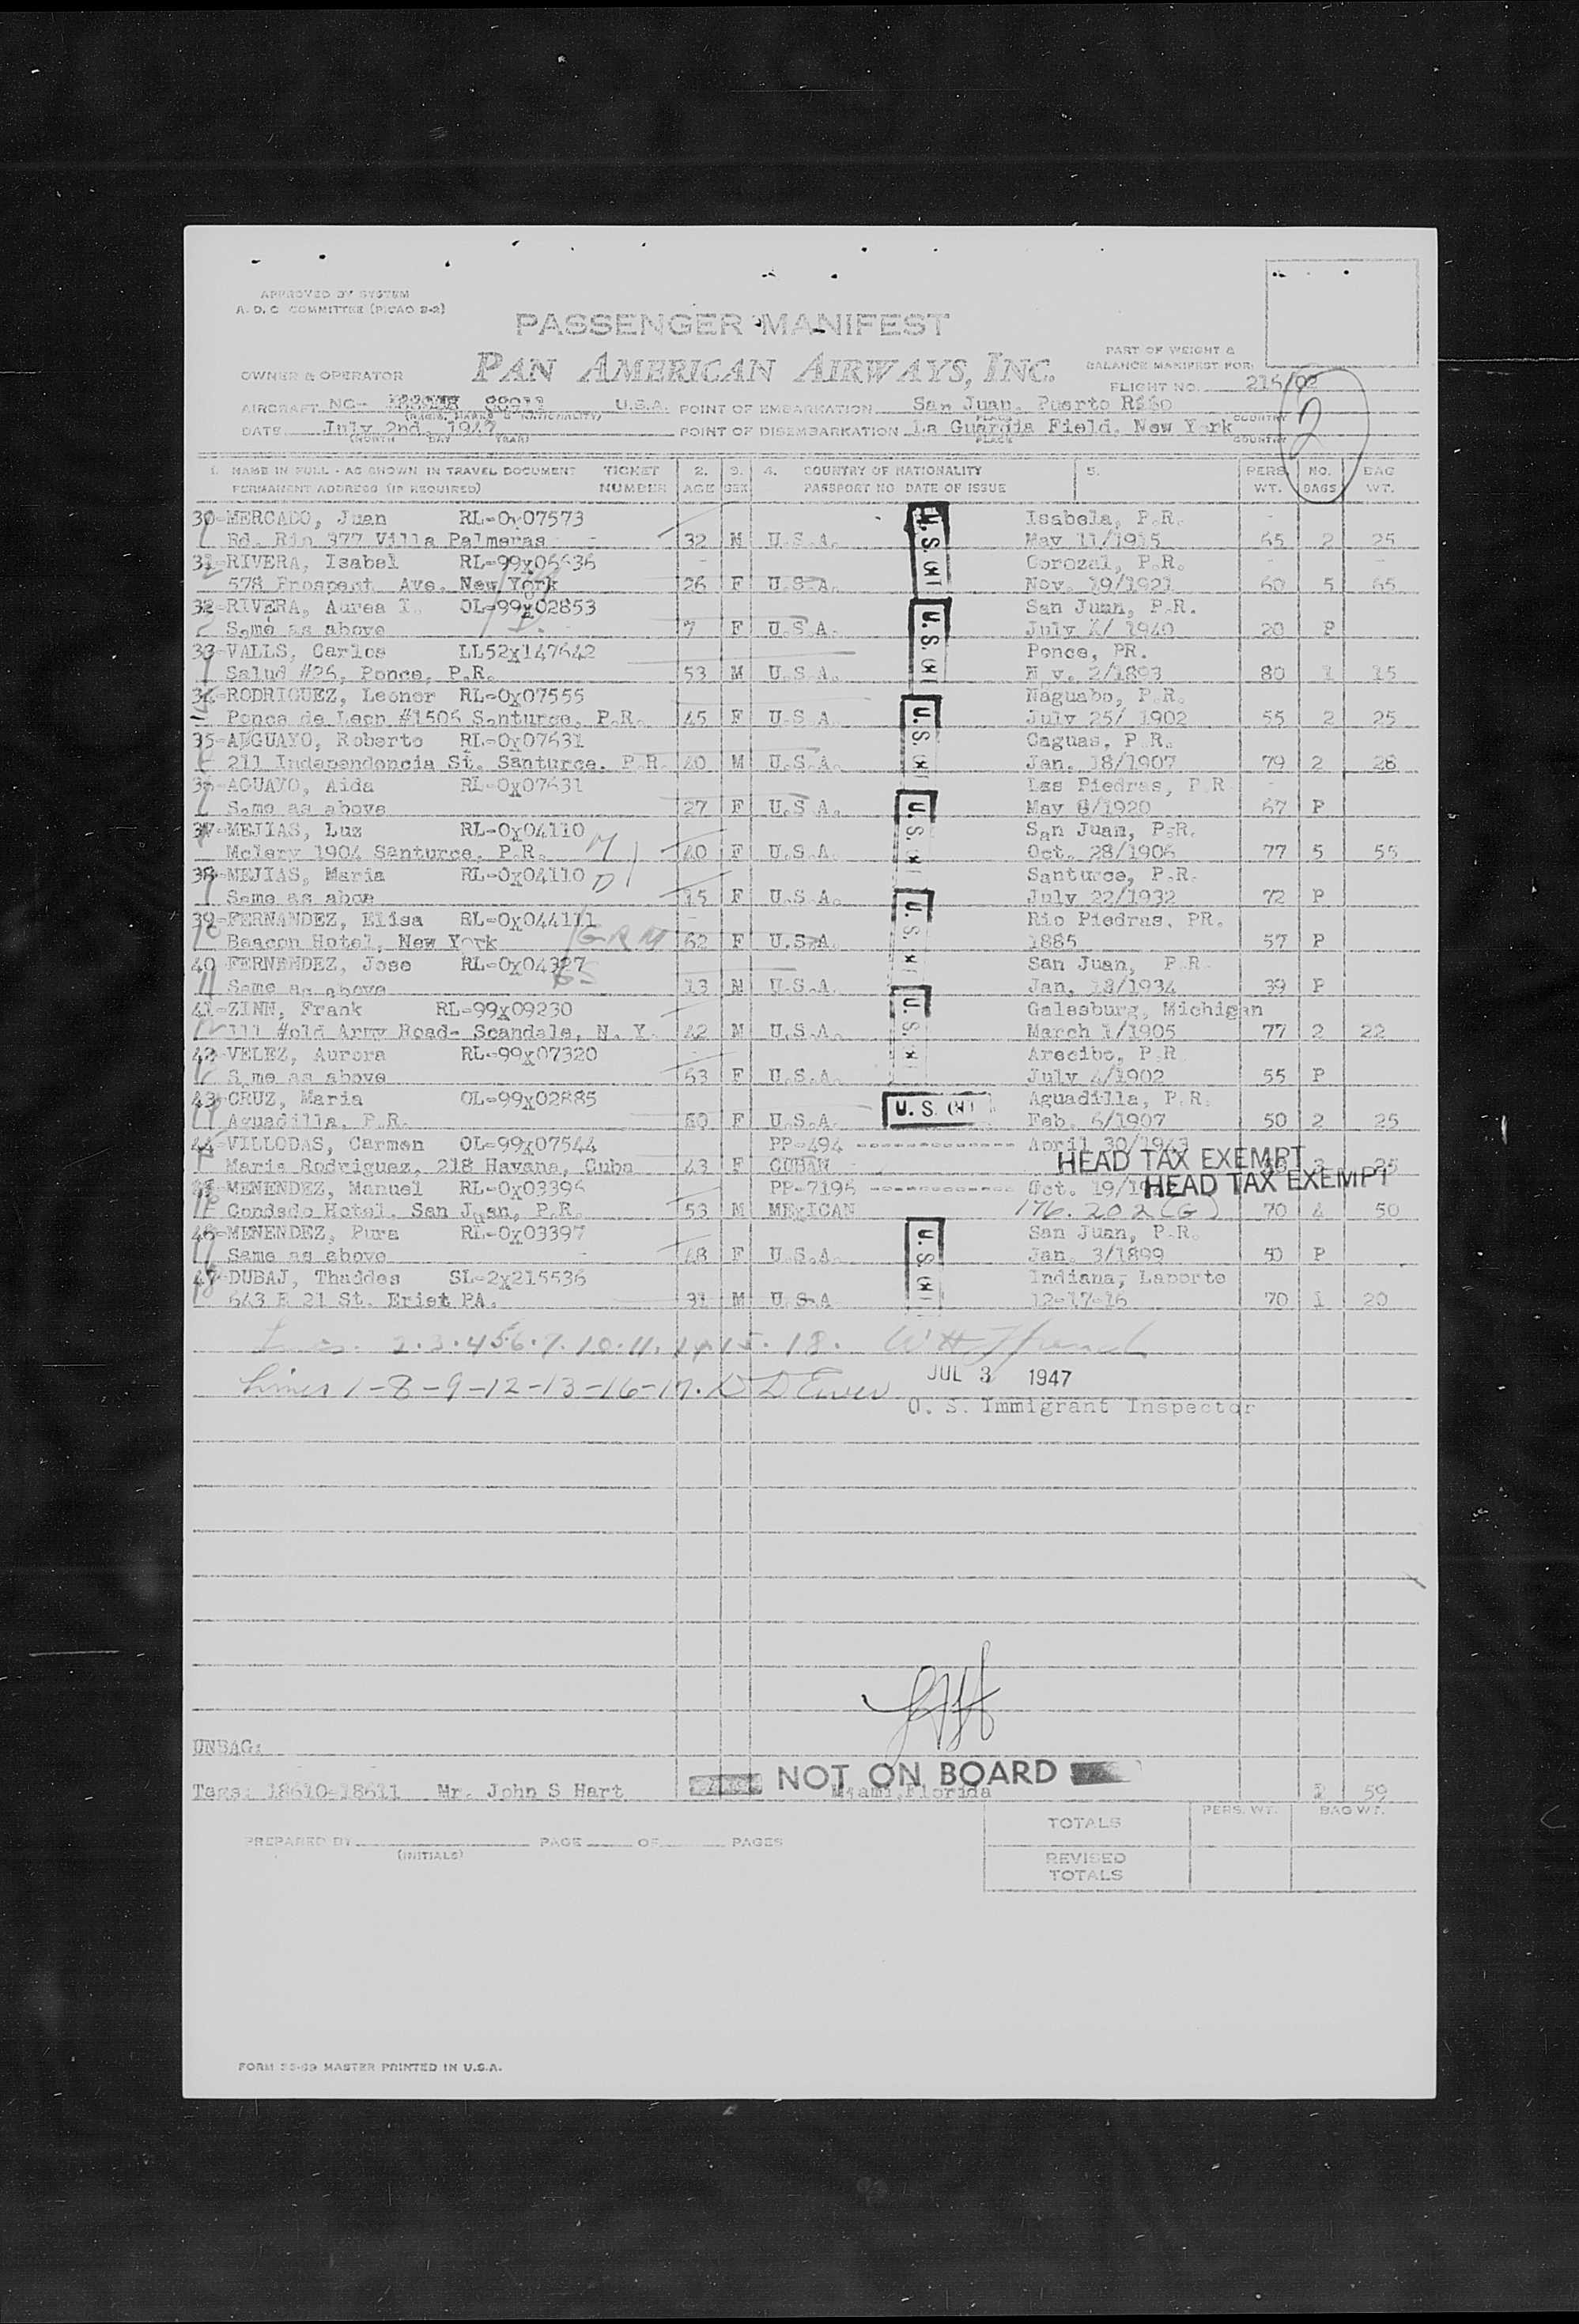 APPROVED BY SYSTEM
A. D. C COMMITTEE (PICAO B-2)
PASSENGER MANIFEST
PAN AMERICAN AIRWAYS, INC.
OWNER & OPERATOR
PART OF WEIGHT &
BALANCE MANIFEST FOR:
FLIGHT NO. 216/02
2
AIRCRAFT NC- 88911 U.S.A. POINT OF EMBARKATION San Juan, Puerto Rico
PLACE COUNTRY
DATE July 2nd, 1947 POINT OF DISEMBARKATION La Guardia Field, New York
(MONTH DAY YEAR) PLACE COUNTRY
1. NAME IN FULL - AS SHOWN IN TRAVEL DOCUMENT TICKET 2. 3. 4. COUNTRY OF NATIONALITY 5. PERS. NO. BAG
PERMANENT ADDRESS (IF REQUIRED) NUMBER AGE SEX PASSPORT NO DATE OF ISSUE WT. BAGS WT.
30-MERCADO, Juan RL-0x07573 Isabela, P.R.
Bd. Rin 377 Villa Palmeras 32 M U.S.A. May 11/1915 65 2 25
31-RIVERA, Isabel RL-99x06636 Corozal, P.R.
578 Prospect Ave. New York 26 F U.S.A. Nov. 19/1921 60 5 65
32-RIVERA, Aurea OL-99x02853 San Juan, P.R.
Same as above 7 F U.S.A. July 1940 20 P
33-VALLS, Carlos LL52x147642 Ponce, PR.
Salud #26, Ponce, P.R. 53 M U.S.A. N v. 2/1893 80 1 15
34-RODRIGUEZ, Leonor RL-0x07555 Naguabo, P.R.
Ponce de Leon #1506 Santurce, P.R. 45 F U.S.A July 25/ 1902 55 2 25
35-AUGUAYO, Roberto RL-0x07631 Caguas, P.R.
211 Independencia St. Santurce, P.R. 40 M U.S.A. Jan. 18/1907 79 2 28
36-AGUAYO, Aida RL-0x07631 Las Piedras, P.R
Same as above 27 F U.S.A. May 8/1920 67 P
37-MEJIAS, Luz RL-0x04110 San Juan, P.R.
Mclary 1904 Santurce, P.R. M 40 F U.S.A. Oct. 28/1906 77 5 55
38-MEJIAS, Maria RL-0x04110 D Santurce, P.R.
Same as above 15 F U.S.A. July 22/1932 72 P
39-FERNANDEZ, Elisa RL-0x044111 Rio Piedras, PR.
Beacon Hotel, New York GRM 62 F U.S.A. 1885 57 P
40 FERNENDEZ, Jose RL-0x04327 San Juan, P.R.
Same as above GS 13 M U.S.A. Jan. 18/1934 39 P
41-ZINN, Frank RL-99x09230 Galesburg, Michigan
111 #old Army Road- Scandale, N. Y. 42 M U.S.A. March 1/1905 77 2 22
42-VELEZ, Aurora RL-99x07320 Arecibo, P.R
S me as above 63 F U.S.A. July 4/1902 55 P
43-CRUZ, Maria OL-99x02885 Aguadilla, P.R.
Aguadilla, P.R. F U.S.A. U. S. (H) Feb. 6/1907 50 2 25
44-VILLODAS, Carmen OL-99x07544 PP-494 ------------- April 30/1943
Maria Rodriguez, 218 Havana, Cuba 43 F CUBAN HEAD TAX EXEMPT 25
45-MENENDEZ, Manuel RL-0x03396 PP-7196 ------------ Oct. 19/ HEAD TAX EXEMPT
Condado Hotel, San Juan, P.R. 53 M MEXICAN 176.202(G) 70 4 50
46-MENENDEZ, Pura RL-0x03397 San Juan, P.R.
Same as above 48 F U.S.A. Jan. 3/1899 50 P
47-DUBAJ, Thaddes SL-2x215536 Indiana, Laporte
643 E 21 St. Eriet PA. 31 M U.S.A 12-17-16 70 1 20
2.3.4.5.6.7.10.11.14.15.18.
Lines 1-8-9-12-13-16-17. JUL 3 1947
U. S. Immigrant Inspector
UNBAG:
NOT ON BOARD
Tags: 18610-18611 Mr. John S Hart Miami, Florida 2 59
TOTALS PERS. WT. BAG WT.
PREPARED BY PAGE OF PAGES
(INITIALS)
REVISED
TOTALS
FORM 35-39 MASTER PRINTED IN U.S.A.